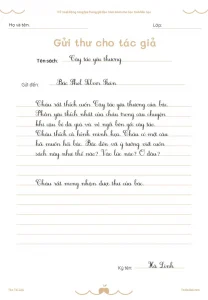 Họ và tên: Lớp:
Gửi thư cho tác giả
Tên sách: Cây táo yêu thương
Gửi đến: Bác
Cháu rất thích cuốn Cây táo yêu thương của bác.
Phần cháu thích nhất của cháu trong câu chuyện
khi cậu bé đã già và về ngồi bên gốc cây táo.
Cháu thích cả hình minh họa. Cháu có một câu
hỏi muốn hỏi bác. Bác đến với ý tưởng viết cuốn
sách này như thế nào? Vào lúc nào? Ở đâu?
Cháu rất mong nhận được thư của bác.
Ký tên: Hà Linh